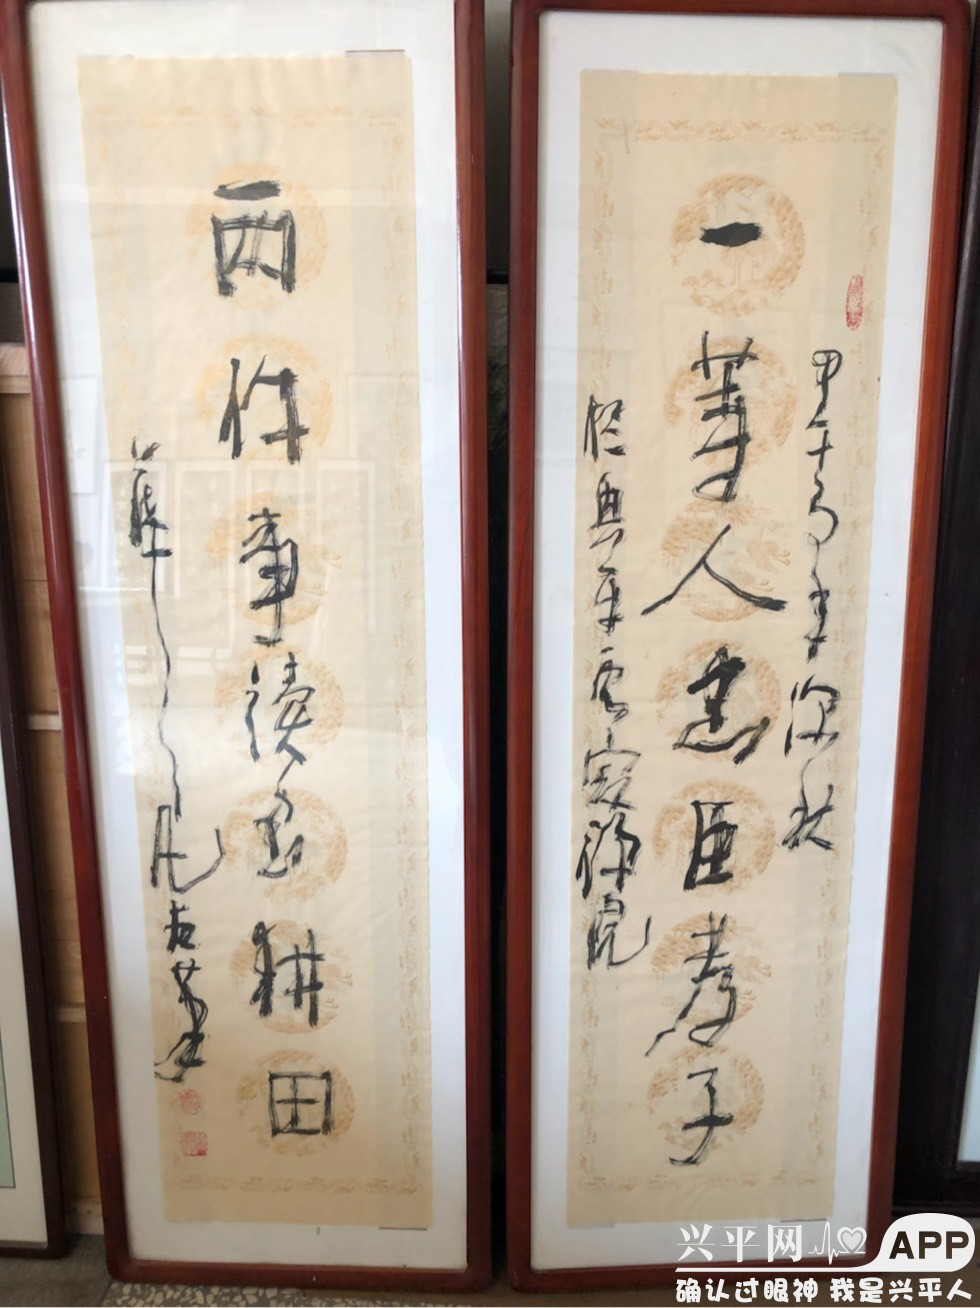 甲午马年深秋
一等人忠臣孝子
於興平雲寂禅院
两件事讀書耕田
兴平网
APP
确认过眼神 我是兴平人